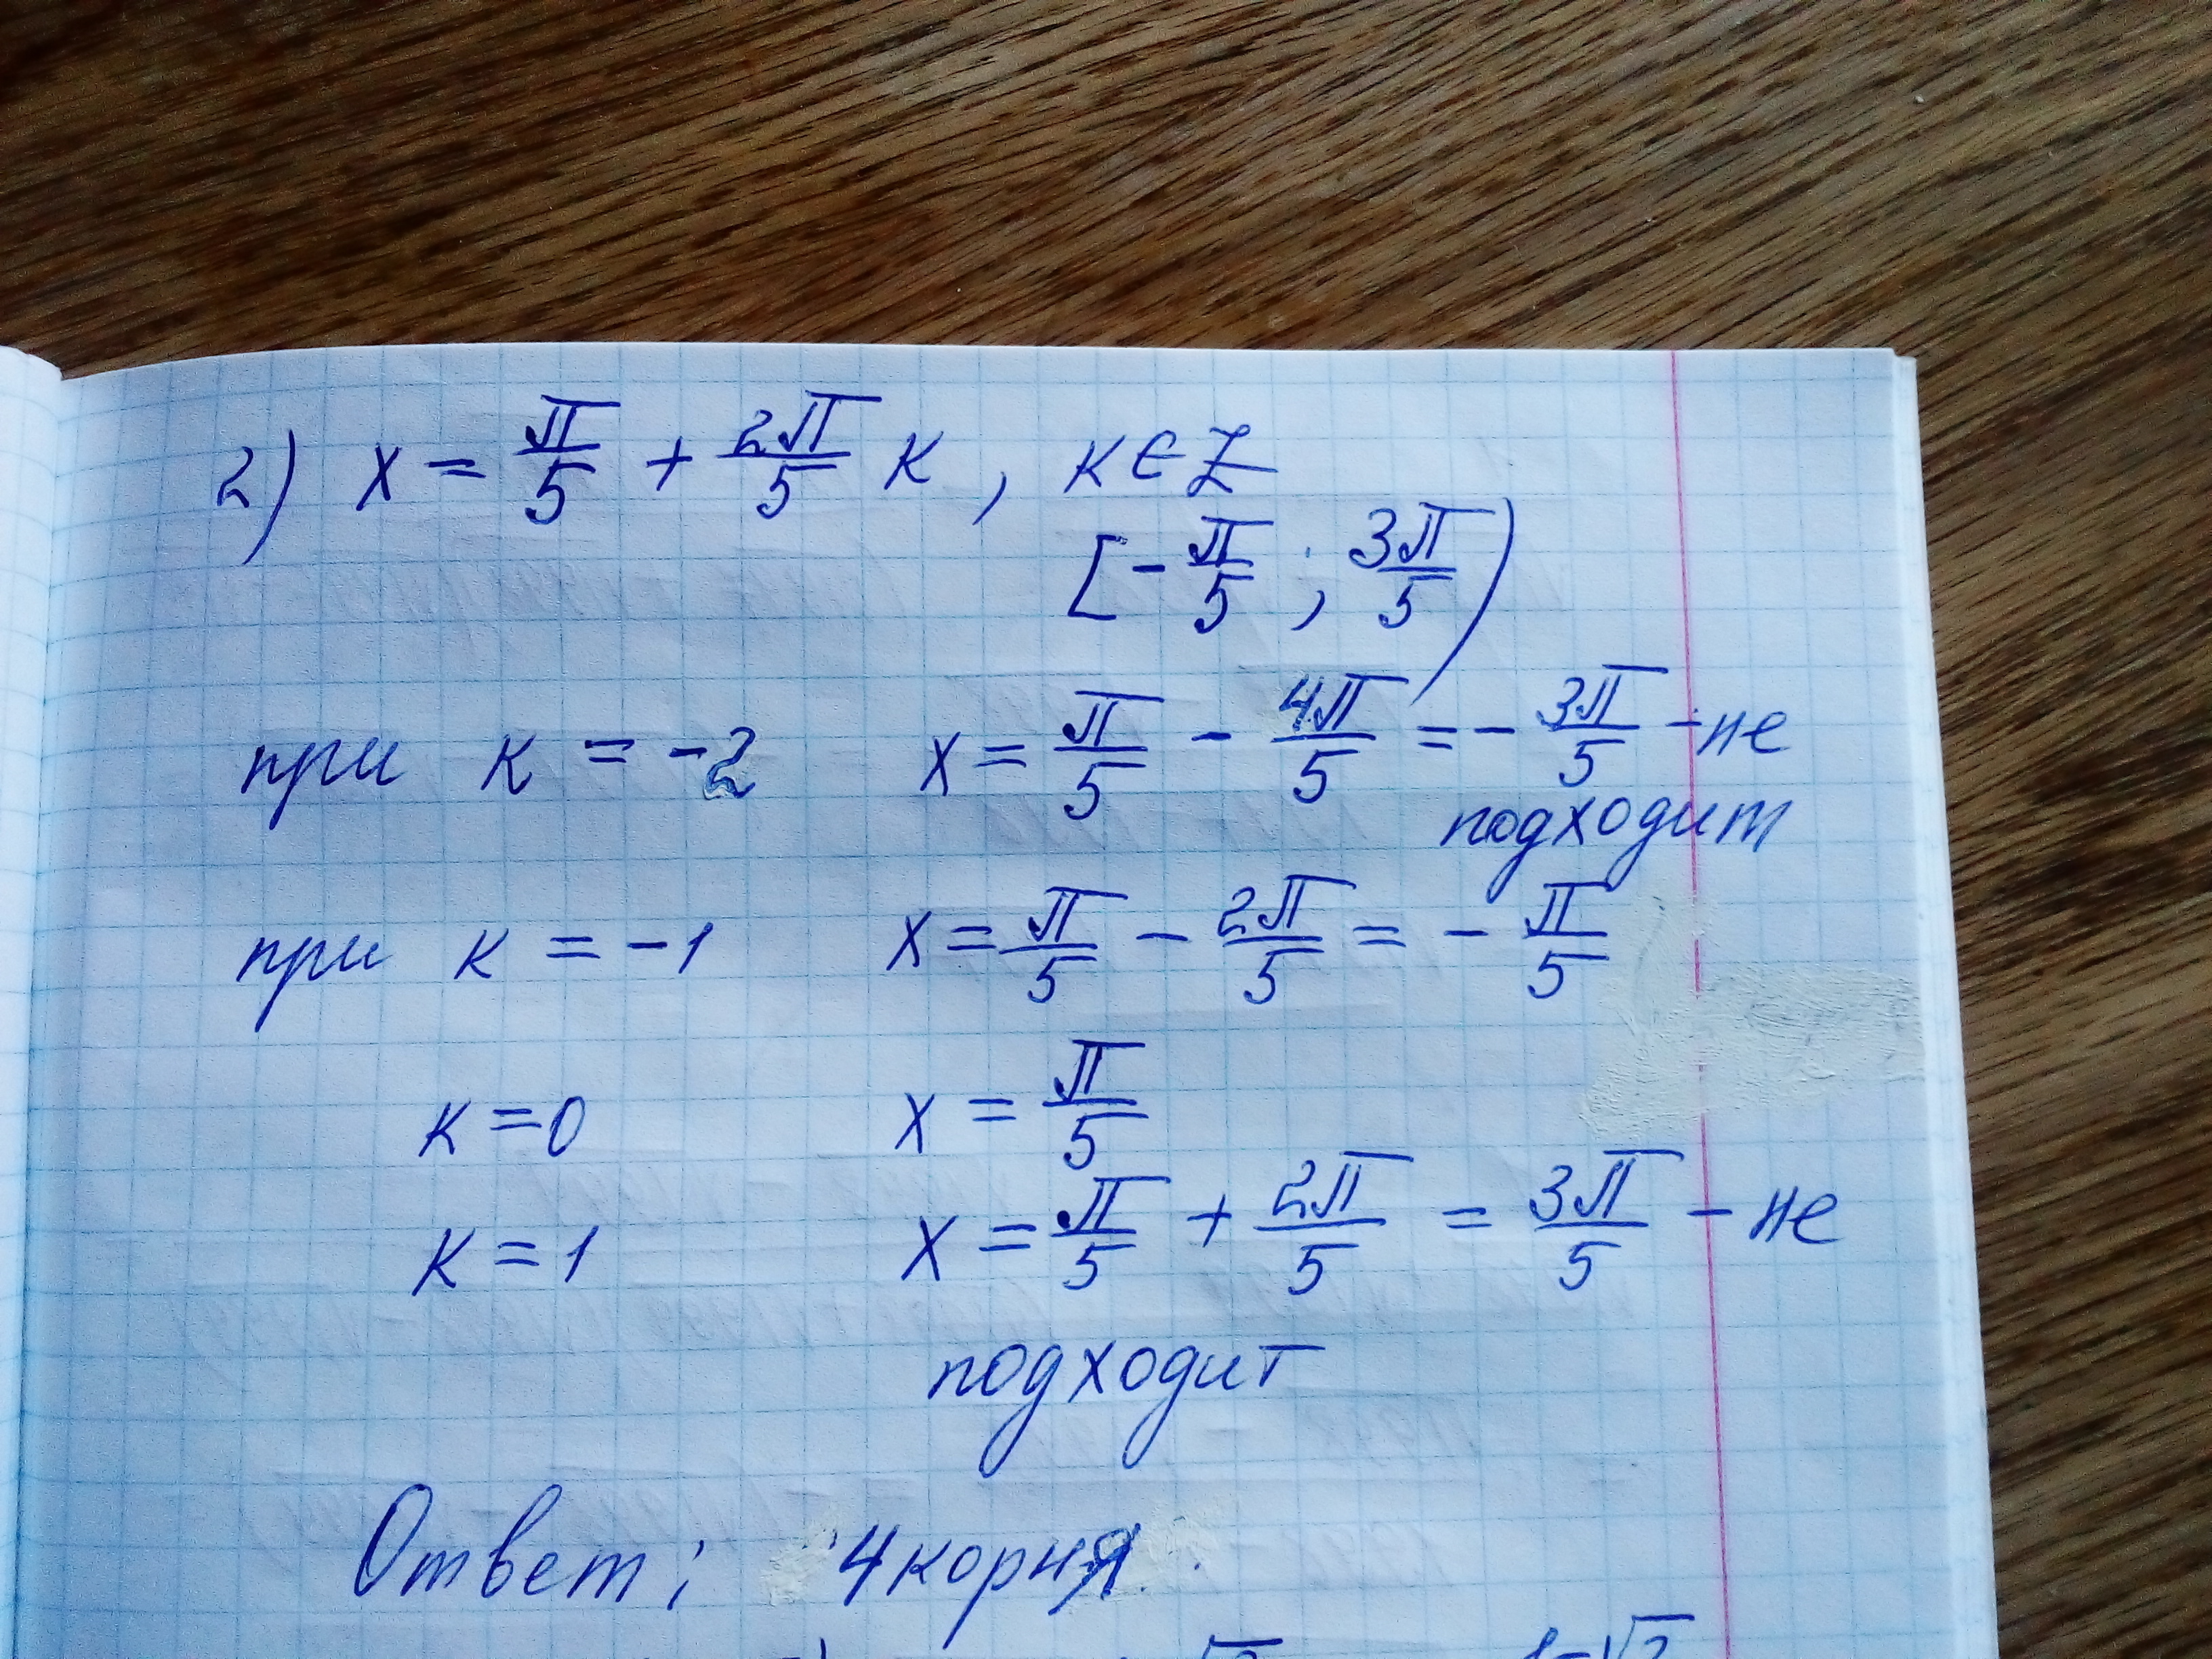 2) x = π/5 + 2π/5 к , к ∈ Z
[-π/5 ; 3π/5)
при к = -2 x = π/5 - 4π/5 = - 3π/5 - не
подходит
при к = -1 x = π/5 - 2π/5 = - π/5
к = 0 x = π/5
к = 1 x = π/5 + 2π/5 = 3π/5 - не
подходит
Ответ: 4 корня.